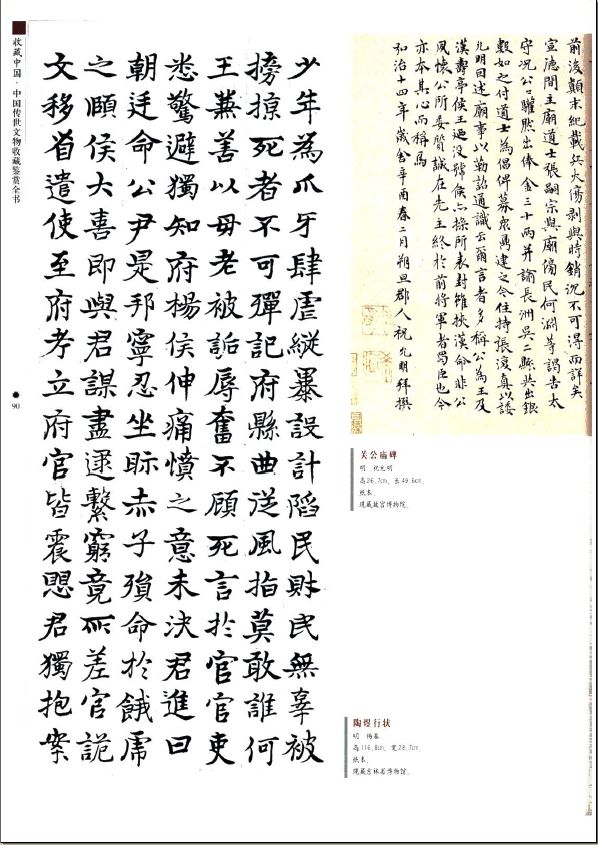 收藏中国·中国传世文物收藏鉴赏全书
90
前後顛末紀載兵火傷剥與時銷沉不可得而詳矣
宣德間主廟道士張嗣宗與廟傍民何淵等謁告太
守況公公驩然出俸金三十兩并諭長洲吳二縣共出銀
數如之付道士為倡俾募衆建之今住持張復真以諉
允明因述廟事以勒詔通識云爾言者多稱公為王及
漢壽亭侯王迺没號侯乃操所表封雖挾漢命非公
風懷公所委質誠在先主終於前將軍者蜀臣也今
亦本其心而稱焉
弘治十四年歲舍辛酉春二月朔旦郡人祝允明拜撰
关公庙碑
明 祝允明
高26.7cm，长49.6cm。
纸本。
现藏故宫博物院。
少年為爪牙肆虐縱暴設計陷民財民無辜被
搒掠死者不可殫記府縣曲從風指莫敢誰何
王蕪善以毋老被詬辱奮不顧死言於官官吏
悉驚避獨知府楊侯伸痛憤之意未決君進曰
朝廷命公尹是邦寧忍坐眎赤子殞命於餓虎
之頤侯大喜即與君謀盡逮繫窮竟所差官詭
文移省遣使至府考立府官皆震愳君獨抱案
陶煜行状
明 杨基
高116.8cm，宽28.7cm。
纸本。
现藏吉林省博物馆。